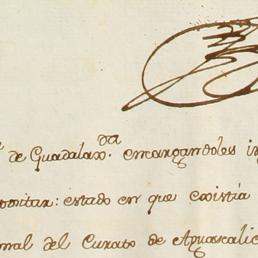 de Guadalax.ª encargandoles in
estado en que existia
nal del Curato de Aguascalie